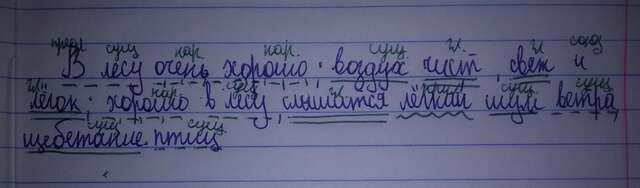 предл сущ нар. нар. сущ. гл. гл союз
В лесу очень хорошо: воздух чист, свеж и
гл. нар. сущ. гл. прил. сущ. сущ
лёгок. хорошо в лесу, слышатся лёгкий шум ветра,
сущ. сущ.
щебетание птиц